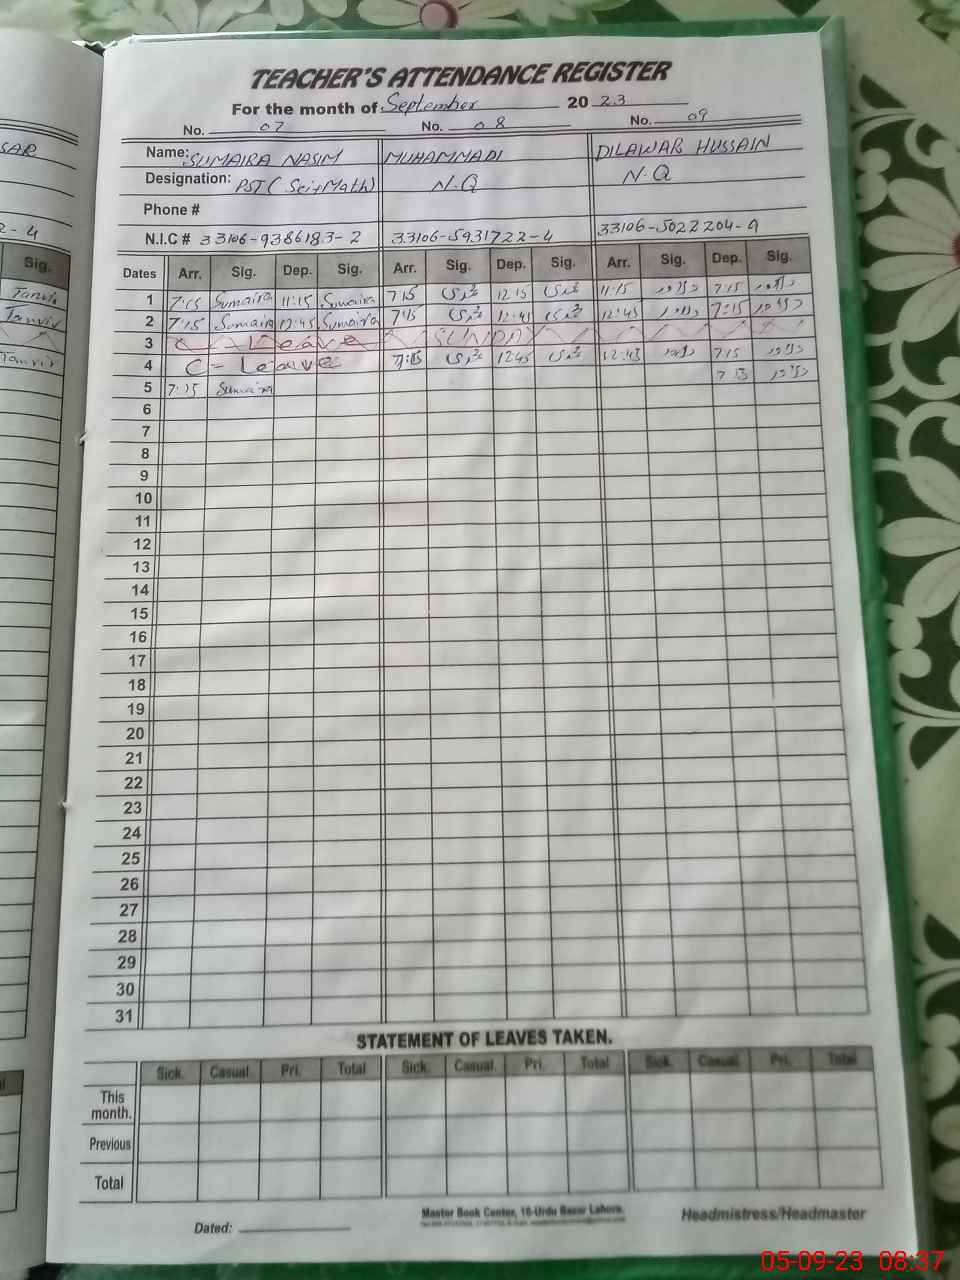 TEACHER'S ATTENDANCE REGISTER
For the month of September 20 23
No. 07 No. 08 No. 09
SAR Name: SUMAIRA NASIM MUHAMMADI DILAWAR HUSSAIN
Designation: PST (Sci+Math) N.Q N.Q
Phone #
2-4 N.I.C # 33106-9386183-2 33106-5931722-4 33106-5022204-9
Sig. Dates Arr. Sig. Dep. Sig. Arr. Sig. Dep. Sig. Arr. Sig. Dep. Sig.
Tanvir 1 7:15 Sumaira 11:15 Sumaira 7:15 12:15 11:15 7:15
Tanvir 2 7:15 Sumaira 12:45 Sumaira 7:15 12:45 12:45 7:15
3 Leave SUNDAY
Tanvir 4 C- Leave 7:15 12:45 12:43 7:15
5 7:15 Sumaira 7:13
6
7
8
9
10
11
12
13
14
15
16
17
18
19
20
21
22
23
24
25
26
27
28
29
30
31
STATEMENT OF LEAVES TAKEN.
Sick. Casual. Pri. Total Sick. Casual. Pri. Total Sick. Casual. Pri. Total
This
month.
Previous
Total
Master Book Center, 18-Urdu Bazar Lahore.
Dated: Headmistress/Headmaster
05-09-23 08:37